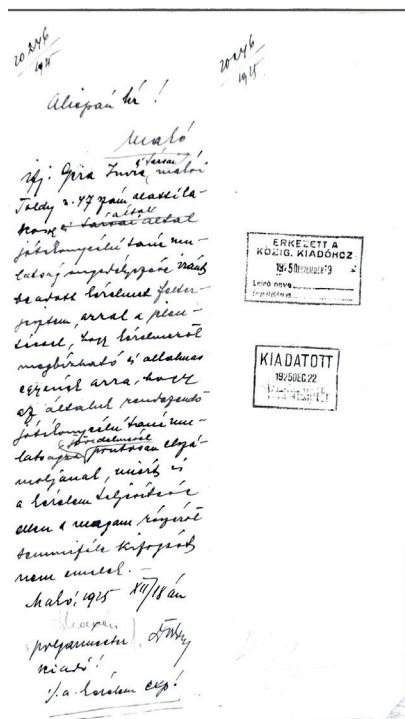 20246
1925
20246
1925.
Alispán úr!
Makó
ifj. Géra Imre és társai makói
Toldy u. 47 szám alatti la-
kos és társai által
által
jótékonycélú tánc mu-
latság engedélyezése iránt
beadott kérelmét felter-
jesztem, azzal a jelen-
téssel, hogy kérelmezők
megbízható és alkalmas
egyének arra, hogy
az általuk rendezendő
jótékonycélú tánc mu-
latság jövedelmével
pontosan elszá-
moljanak, miért is
a kérelem teljesítése
ellen a magam részéről
semmiféle kifogást
nem emelek. —
Makó, 1925 XII/18 án
polgármester
Kiadó!
./. a kérelem exp!
ÉRKEZETT A
KÖZIG. KIADÓHOZ
1925 DEZEMBER 19
Leíró neve
KIADATOTT
1925 DEC. 22